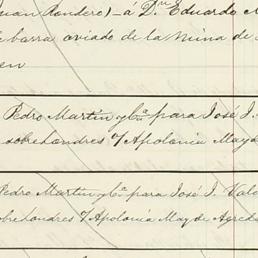 uan Rondero)–á Dn Eduardo
barra aviado de la Mina de
en
Pedro Martin y Ca para José J.
sobre Londres º/ Apolonia May de
Pedro Martin y Ca para José J. Val
sobre Londres º/ Apolonia May. de Agreda